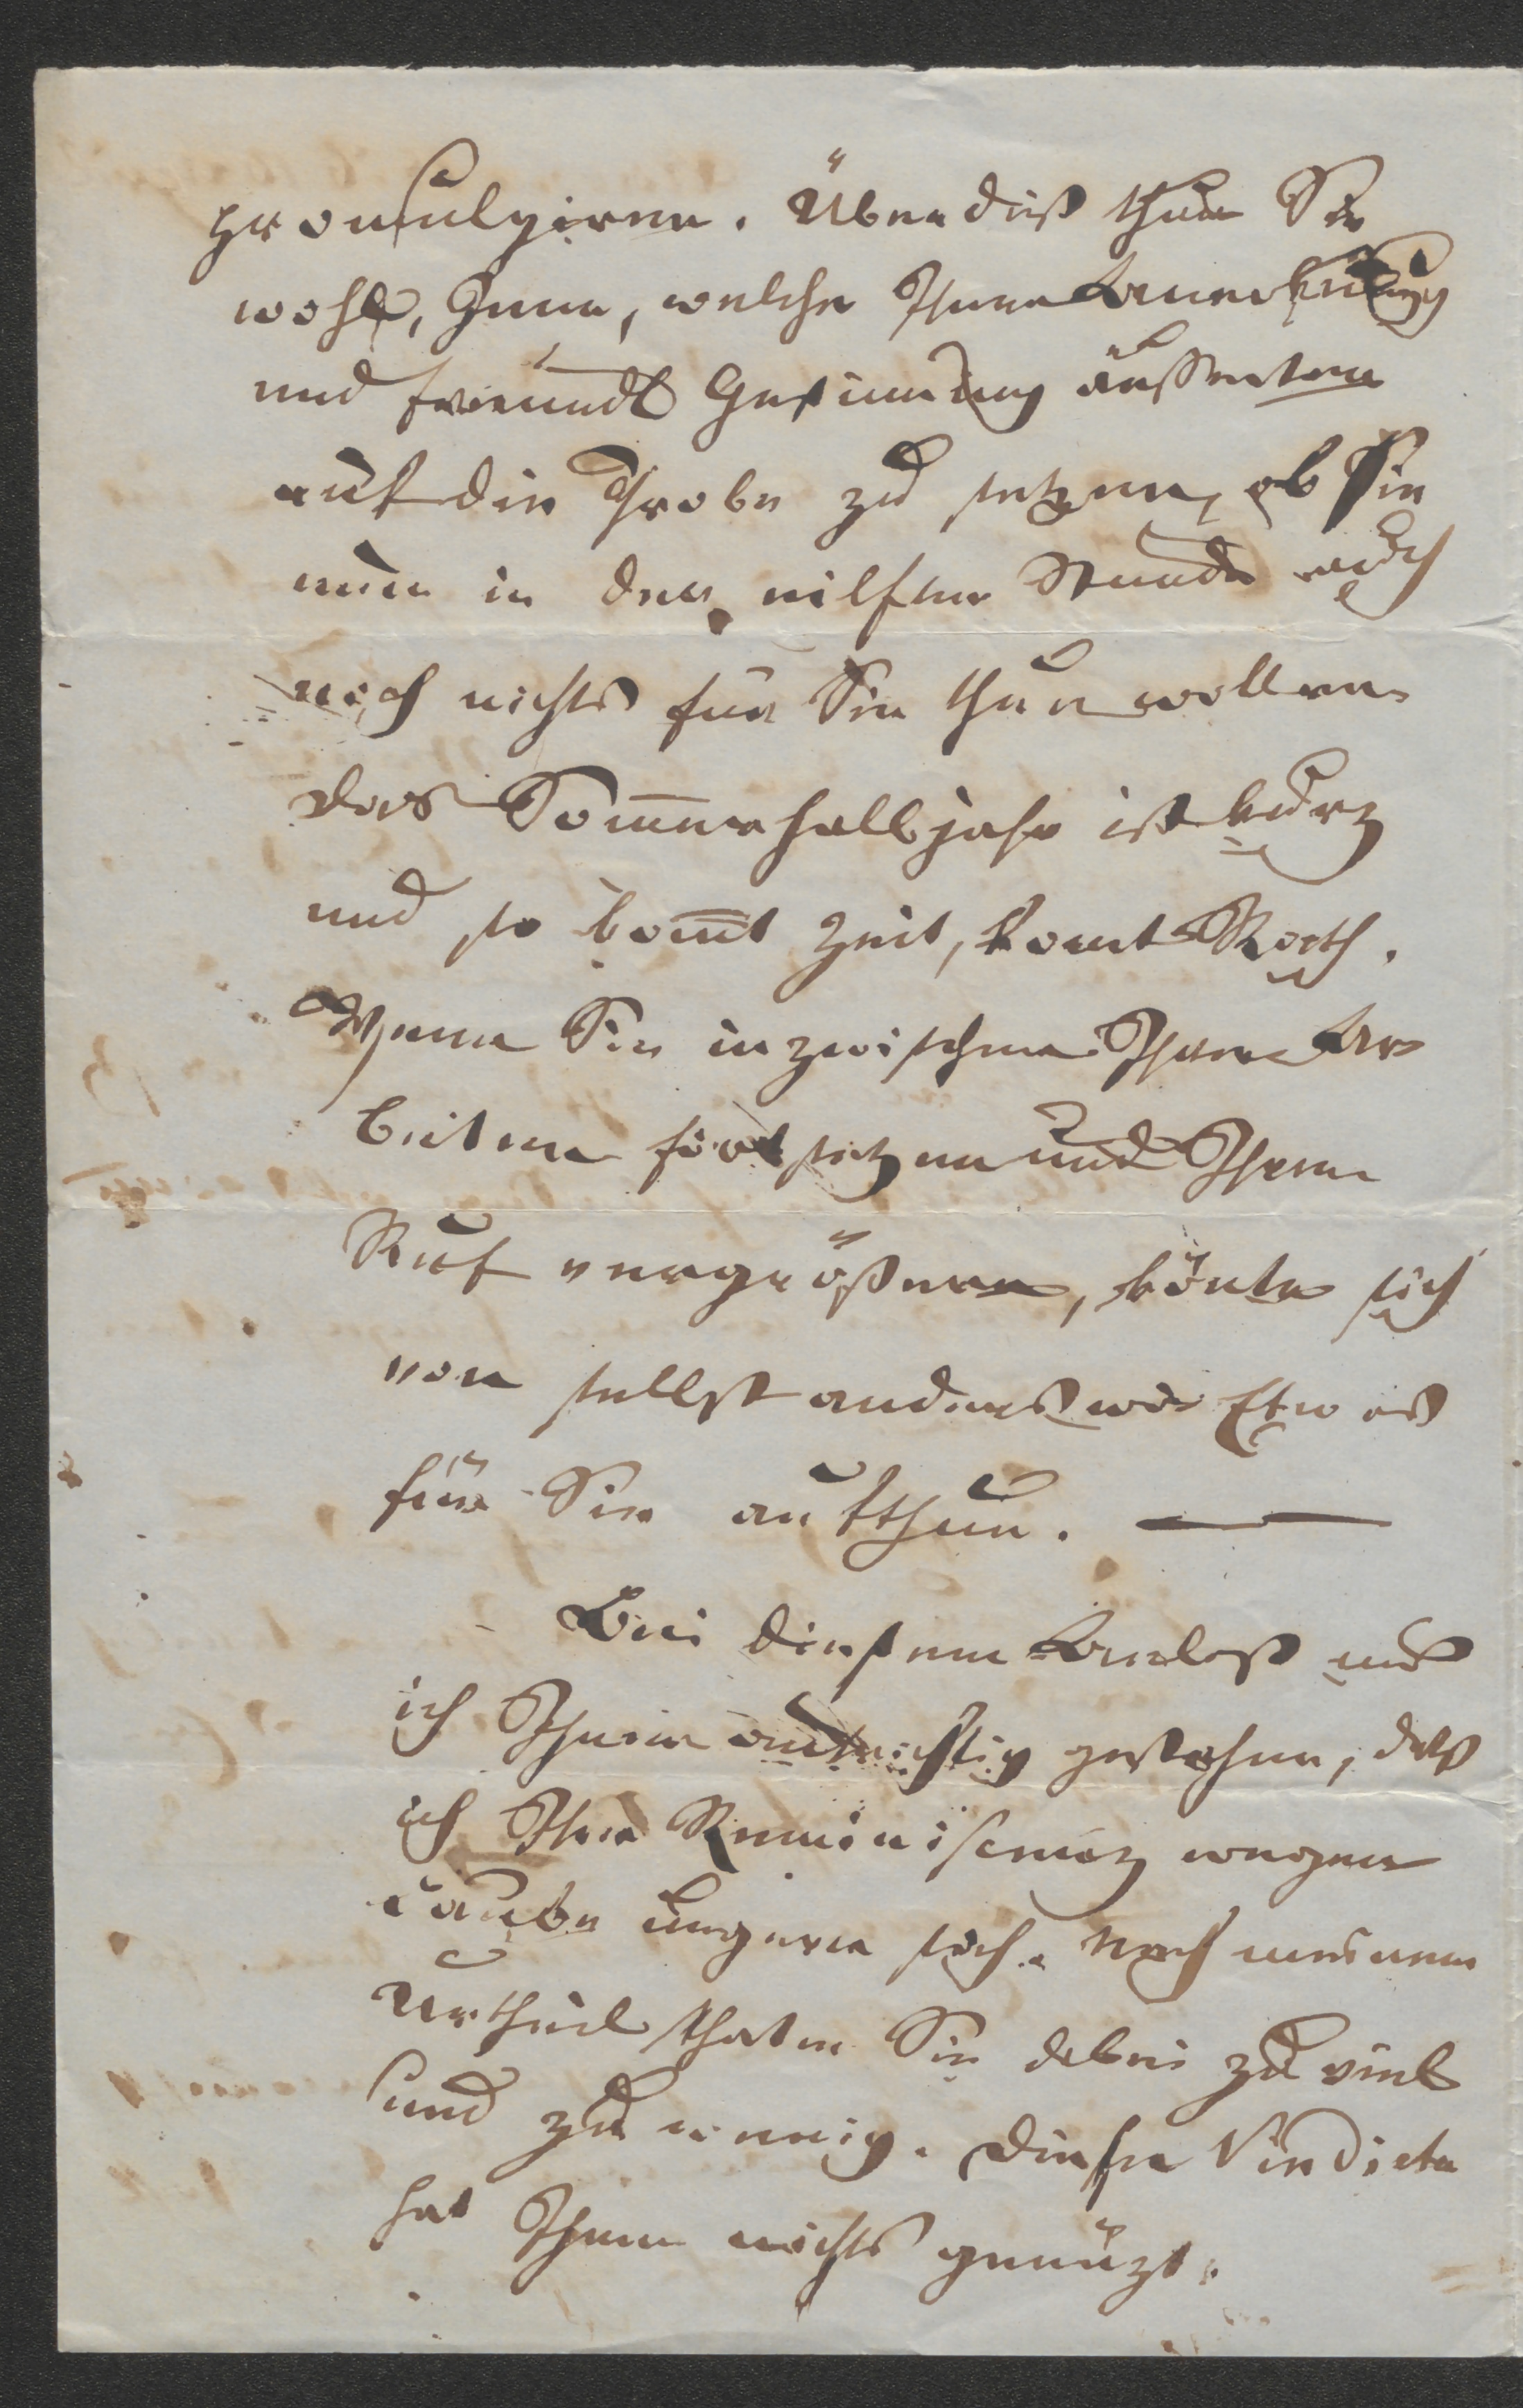 promulgiren. Überdieß thun Sie
wohl, Jene, welche Ihnen Anerkenung
und freundl Gesinnung äusserten
auf die Probe zu setzen, ob Sie
nun in der eilften Stunde auch
noch nichts für Sie thun wollen.
das Som̅erhalbjahr ist kurz
und so kom̅t Zeit, komt Rath.
Wenn Sie inzwischen Ihre Ar
beiten fortsetzen und Ihren
Ruf vergrößern, könte sich
von selbst anderswo Etwas
für Sie aufthun. —
Bei diesem Anlaß muß
ich Ihnen aufrichtig gestehen, daß
ich Ihre Reminiscenz wegen
Taube ungern sah. Nach meinem
Urtheil thaten Sie dabei zu viel
und zu wenig. Diese Vindicte
hat Ihnen nichts genüzt.